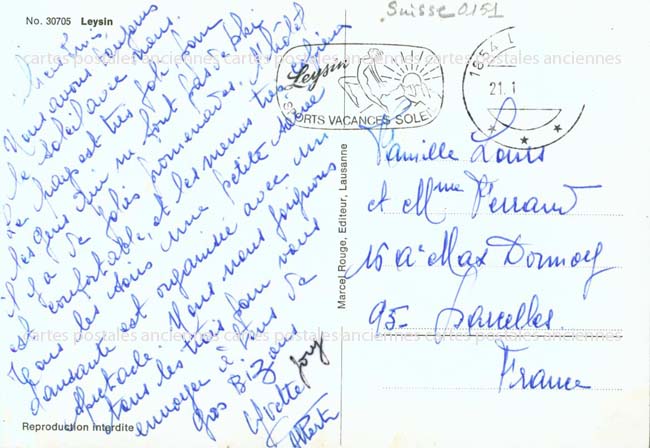 No. 30705 Leysin
Suisse 0151
cartes postales anciennes cartes postales anciennes cartes postales anciennes
Nous avons toujours
le soleil avec nous.
La neige est très folle pour
les gens qui ne font pas de ski
il y a de jolies promenades. L'hôtel
est confortable, et les menus très
Tous les soirs une petite soirée
dansante est organisée avec un
spectacle. Nous nous joignons
tous les trois pour vous
envoyer à tous de
gros BIZOU
Yvette Jory
Albert
Reproduction interdite
Marcel Rouge, Editeur, Lausanne
Leysin
SPORTS VACANCES SOLEIL
1854 L
21.1
Famille Louis
et Mme Perrand
16 a. Max Dormoy
95- Sarcelles
France
cartes postales anciennes cartes postales anciennes cartes postales anciennes